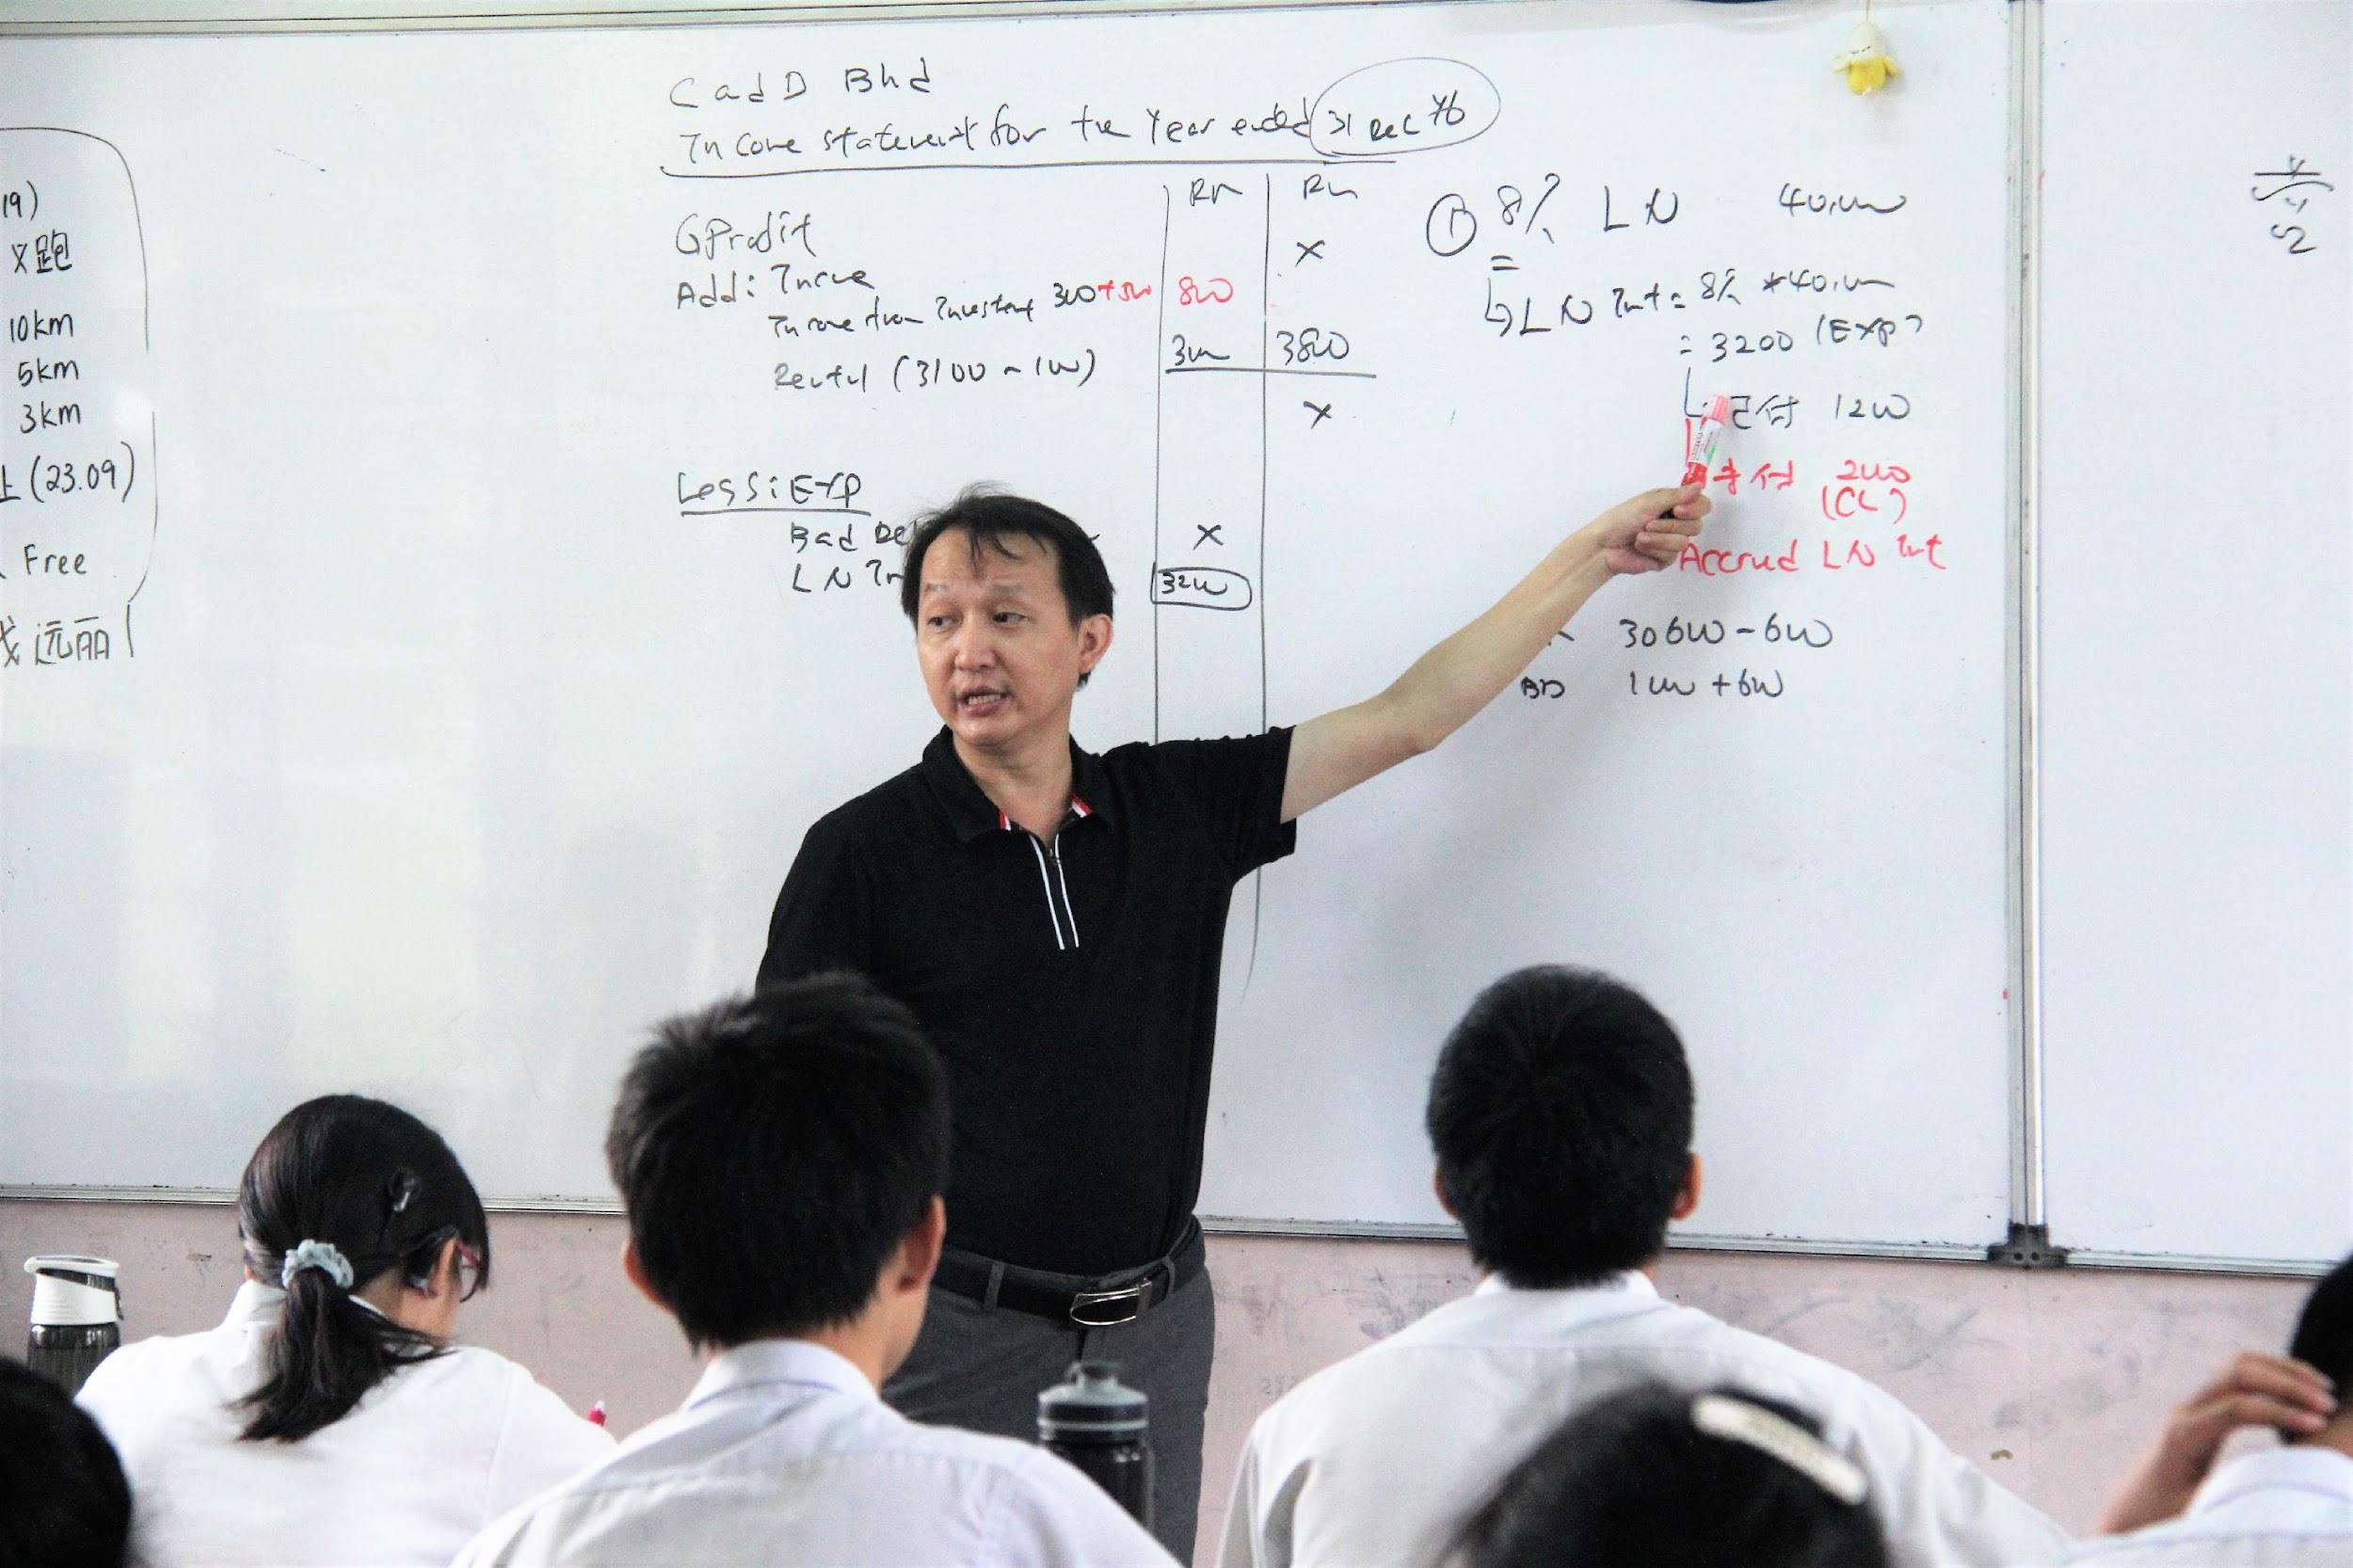 19)
X跑
10km
5km
3km
止 (23.09)
Free
找 远丽
C and D Bhd
Income statement for the Year ended 31 Dec Y6
RM RM
GProfit X
Add: Income
Income from Investment 300+500 800
Rental (3100 - 100) 3000 3800
X
Less: Exp
Bad De X
LN In 3200
① 8% LN 40,000
LN Int = 8% * 40,000
= 3200 (Exp)
已付 1200
未付 2000
(CL)
Accrued LN Int
30600 - 600
BD 1000 + 600